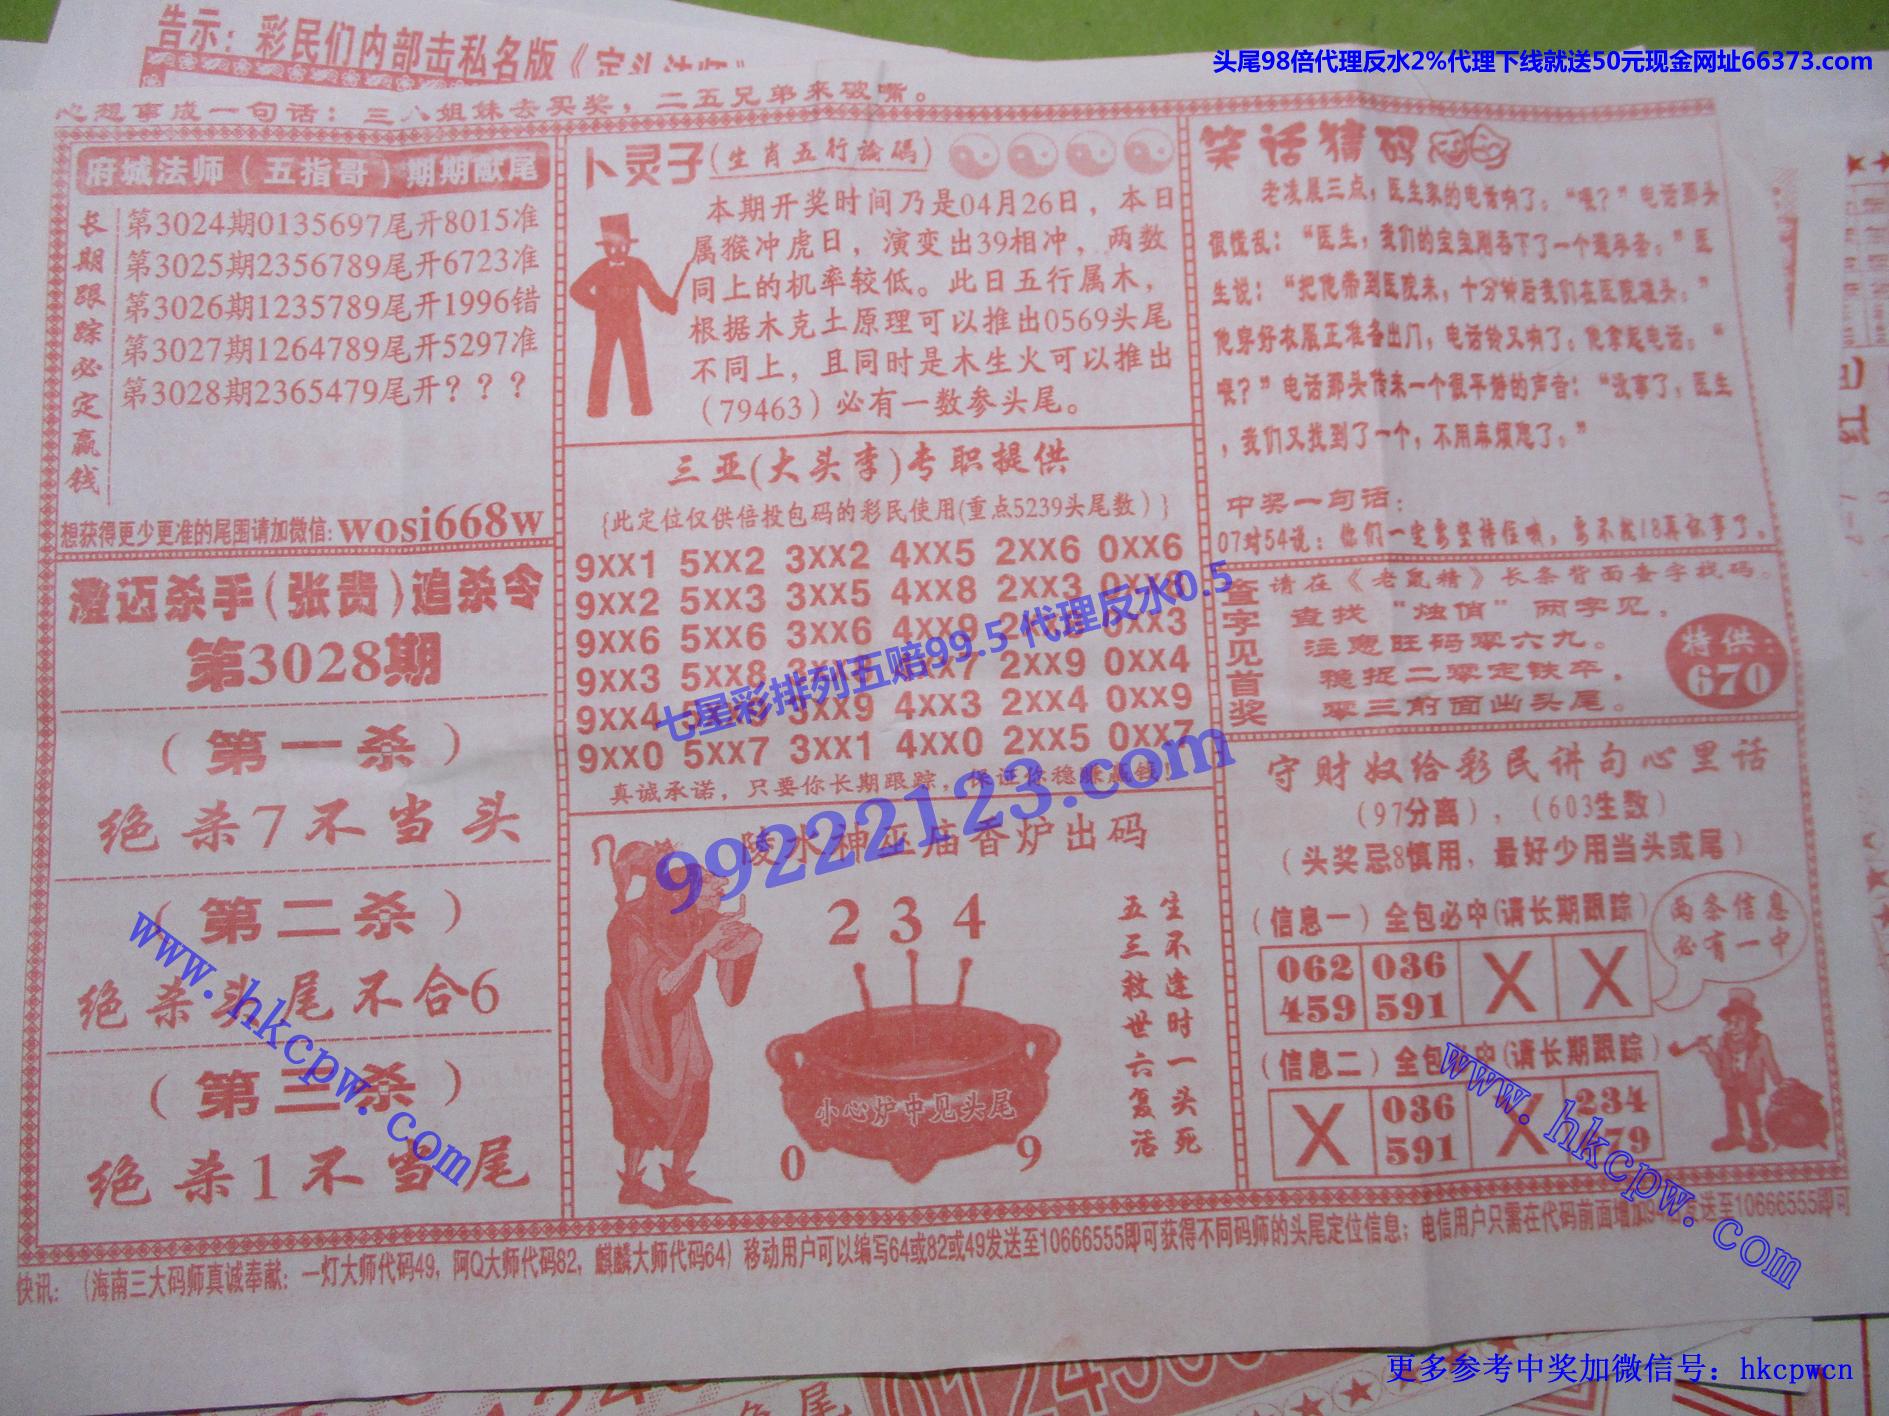 头尾98倍代理反水2%代理下线就送50元现金网址66373.com
告示：彩民们内部击私名版《定头法师》
心想事成一句话：三八姐妹去买奖，二五兄弟来破嘴。
府城法师（五指哥）期期献尾
长期跟踪必定赢钱
第3024期0135697尾开8015准
第3025期2356789尾开6723准
第3026期1235789尾开1996错
第3027期1264789尾开5297准
第3028期2365479尾开？？？
想获得更少更准的尾围请加微信：wosi668w
澄迈杀手（张贵）追杀令
第3028期
（第一杀）
绝杀7不当头
（第二杀）
绝杀头尾不合6
（第三杀）
绝杀1不当尾
卜灵子（生肖五行論碼）
本期开奖时间乃是04月26日，本日
属猴冲虎日，演变出39相冲，两数
同上的机率较低。此日五行属木，
根据木克土原理可以推出0569头尾
不同上，且同时是木生火可以推出
（79463）必有一数参头尾。
三亚（大头李）专职提供
{此定位仅供倍投包码的彩民使用(重点5239头尾数）}
9XX1 5XX2 3XX2 4XX5 2XX6 0XX6
9XX2 5XX3 3XX5 4XX8 2XX3
9XX6 5XX6 3XX6 4XX9 0XX3
9XX3 5XX8 2XX9 0XX4
9XX4 3XX9 4XX3 2XX4 0XX9
9XX0 5XX7 3XX1 4XX0 2XX5 0XX7
真诚承诺，只要你长期跟踪，保证你稳赚赢钱！
七星彩排列五赔99.5 代理反水0.5
99222123.com
陵水神巫庙香炉出码
2 3 4
小心炉中见头尾
0 9
生不逢时一头死
五三救世六复活
笑话猜码
老凌晨三点，医生家的电话响了：“喂？”电话那头
很慌乱：“医生，我们的宝宝刚吞下了一个避孕套。”医
生说：“把他带到医院来，十分钟后我们在医院碰头。”
他穿好衣服正准备出门，电话铃又响了：他拿起电话：“
喂？”电话那头传来一个很平静的声音：“没事了，医生
，我们又找到了一个，不用麻烦您了。”
中奖一句话：
07对54说：你们一定要坚持住哦，要不然18真你事了。
查字见首奖
请在《老鼠精》长条背面查字找码。
查找“烛俏”两字见，
注意旺码零六九。
稳捉二零定铁卒，
零三前面出头尾。
特供：
670
守财奴给彩民讲句心里话
（97分离），（603生数）
（头奖忌8慎用，最好少用当头或尾）
（信息一）全包必中(请长期跟踪）
两条信息
必有一中
062 036 X X
459 591
（信息二）全包必中(请长期跟踪）
X 036 X 234
591 79
www.hkcpw.com
www.hkcpw.com
快讯：（海南三大码师真诚奉献：一灯大师代码49，阿Q大师代码82，麒麟大师代码64）移动用户可以编写64或82或49发送至10666555即可获得不同码师的头尾定位信息；电信用户只需在代码前面增加94后发送至10666555即可
更多参考中奖加微信号：hkcpwcn